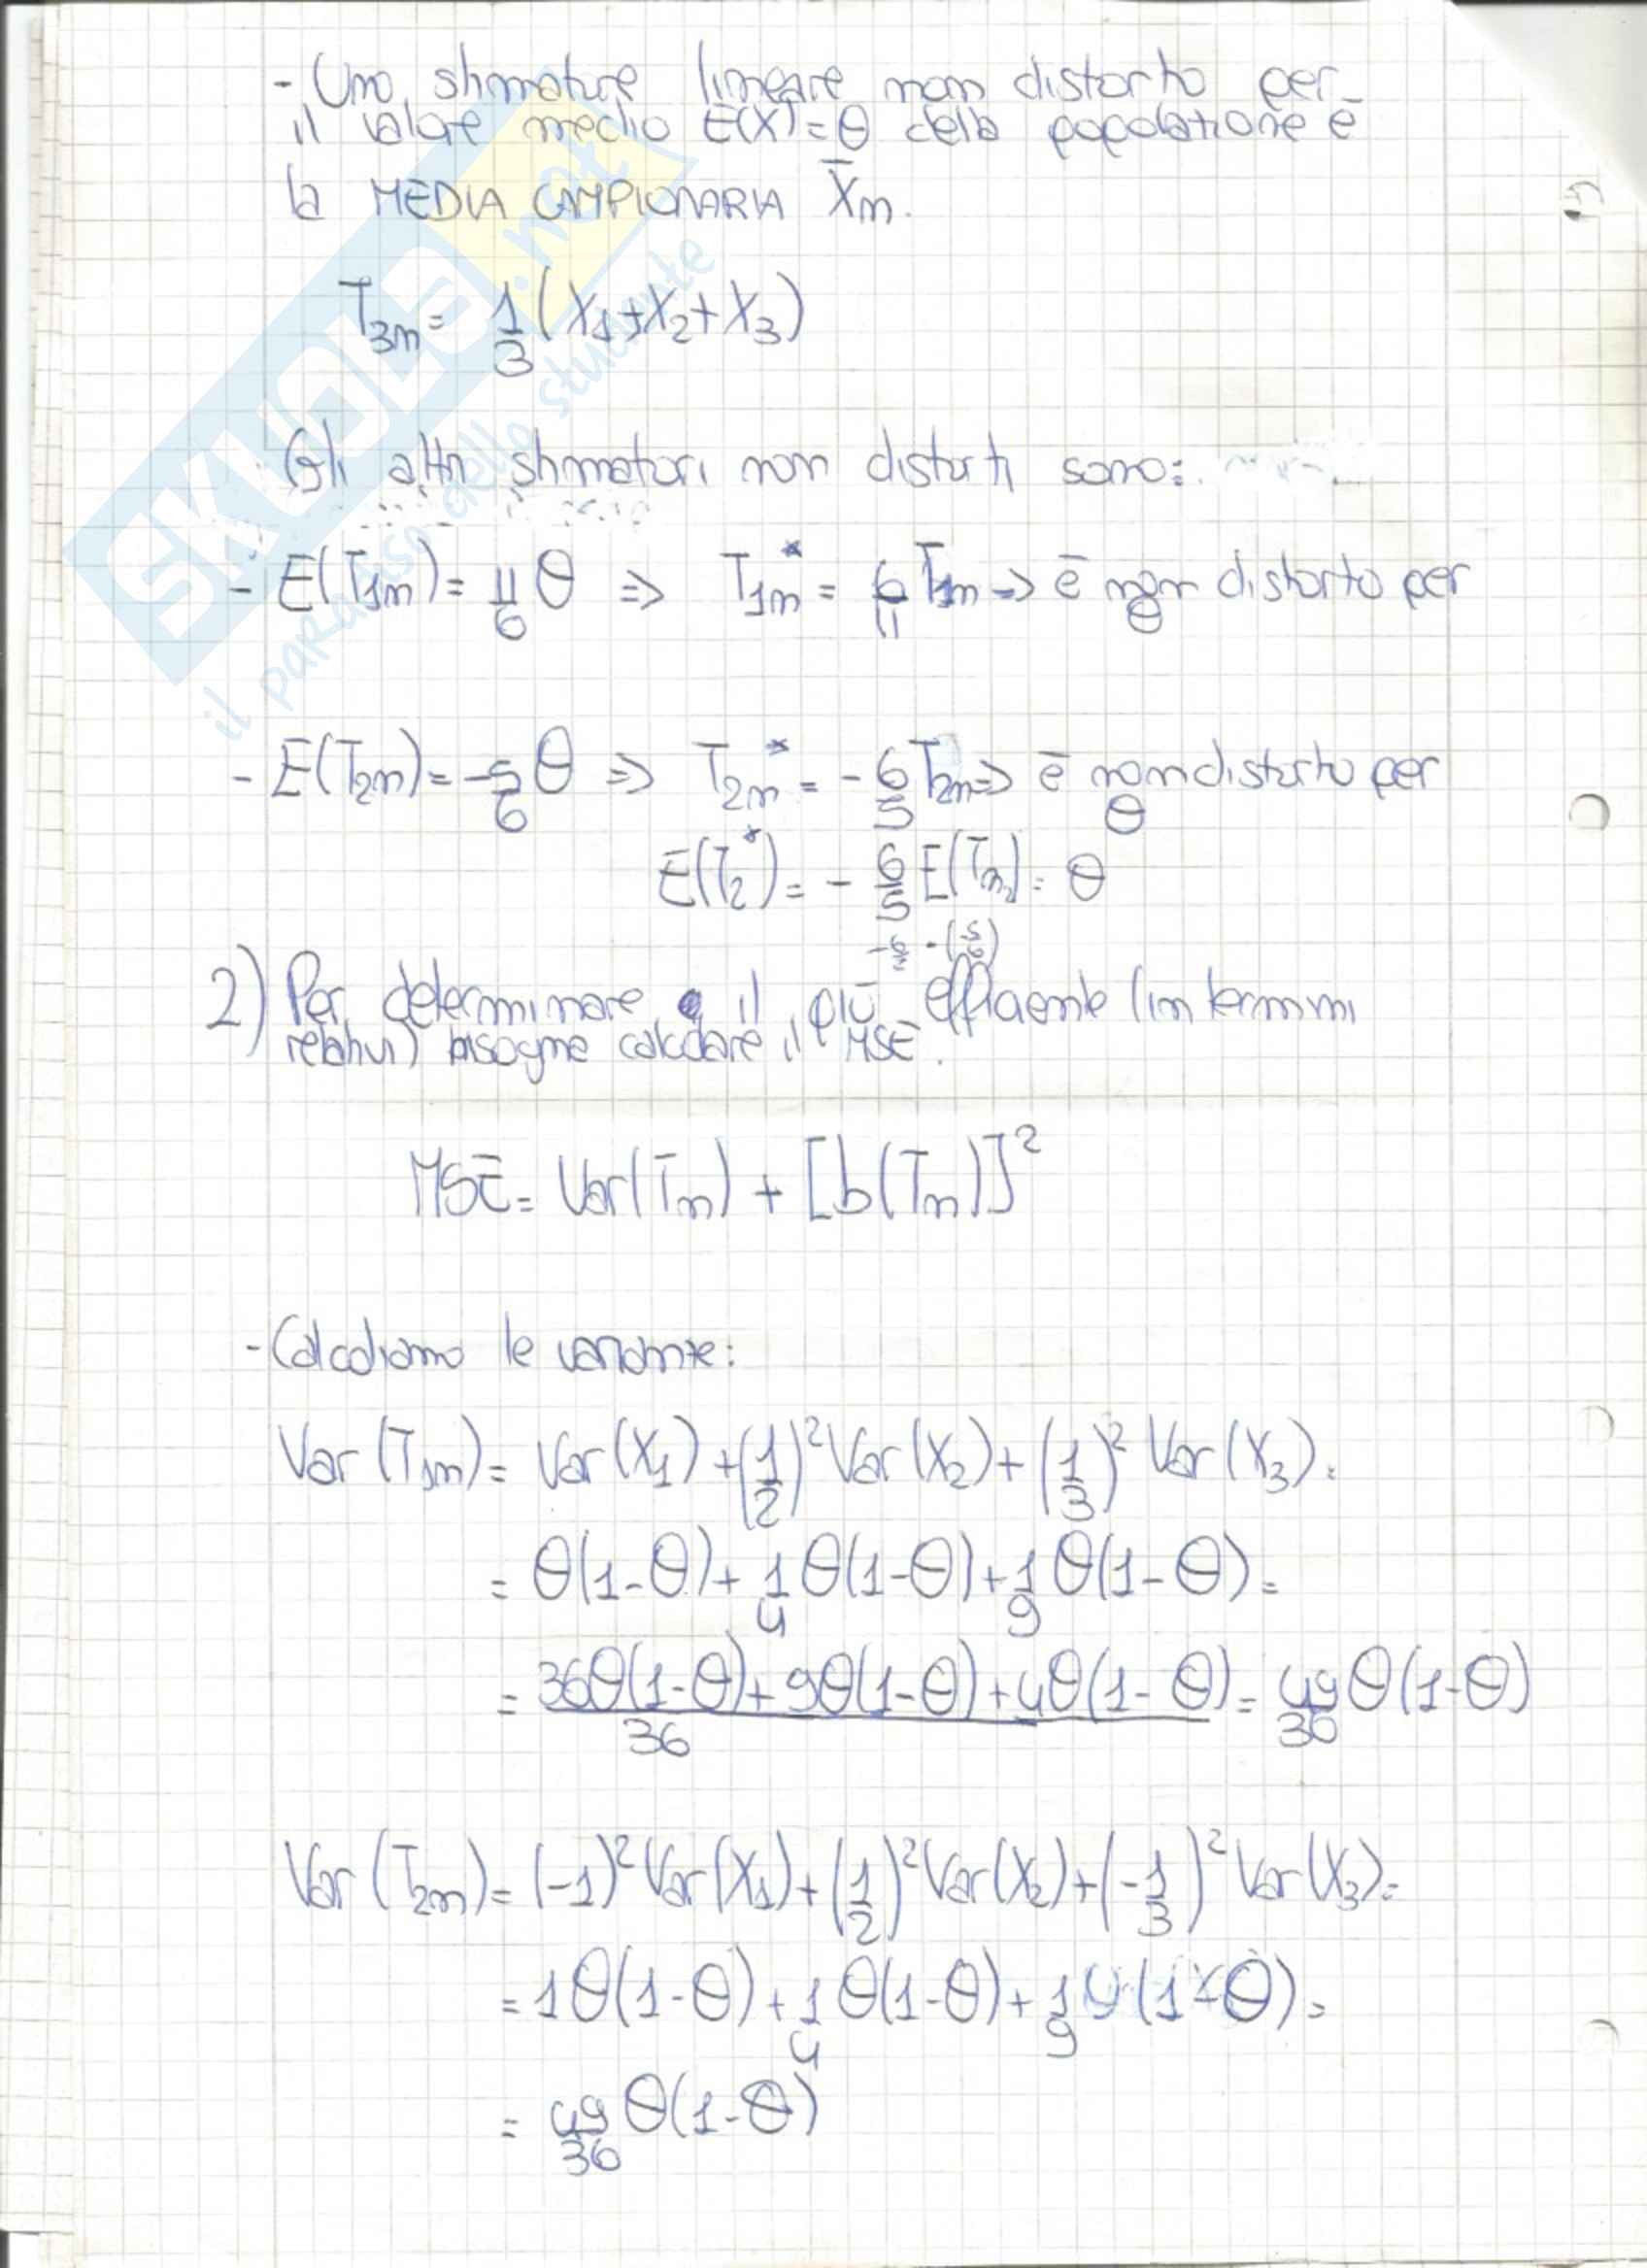 - Uno stimatore lineare non distorto per
il valore medio E(X)=θ della popolazione è
la MEDIA CAMPIONARIA X̄n.
T3n = 1/3 (X1+X2+X3)
Gli altri stimatori non distorti sono:
- E(T1n) = 11/6 θ ⇒ T1n* = 6/11 T1n ⇒ è non distorto per
θ
- E(T2n) = -5/6 θ ⇒ T2n* = -6/5 T2n ⇒ è non distorto per
θ
E(T2*) = - 6/5 E(T2n) = θ
-6/5 · (-5/6)
2) Per determinare il più efficiente (in termini
relativi) bisogna calcolare il MSE.
MSE = Var(Tn) + [b(Tn)]²
- Calcoliamo le varianze:
Var (T1n) = Var (X1) + (1/2)² Var (X2) + (1/3)² Var (X3) =
= θ(1-θ) + 1/4 θ(1-θ) + 1/9 θ(1-θ) =
= 36θ(1-θ) + 9θ(1-θ) + 4θ(1-θ) / 36 = 49/36 θ(1-θ)
Var (T2n) = (-1)² Var (X1) + (1/2)² Var (X2) + (-1/3)² Var (X3) =
= 1 θ(1-θ) + 1/4 θ(1-θ) + 1/9 θ(1-θ) =
= 49/36 θ(1-θ)
SKUOLA.net
il paradiso dello studente